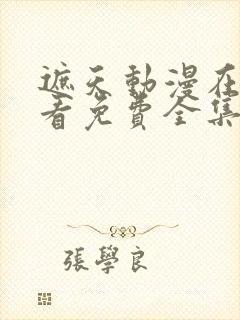 遮天動漫在
看免費全集
張學良